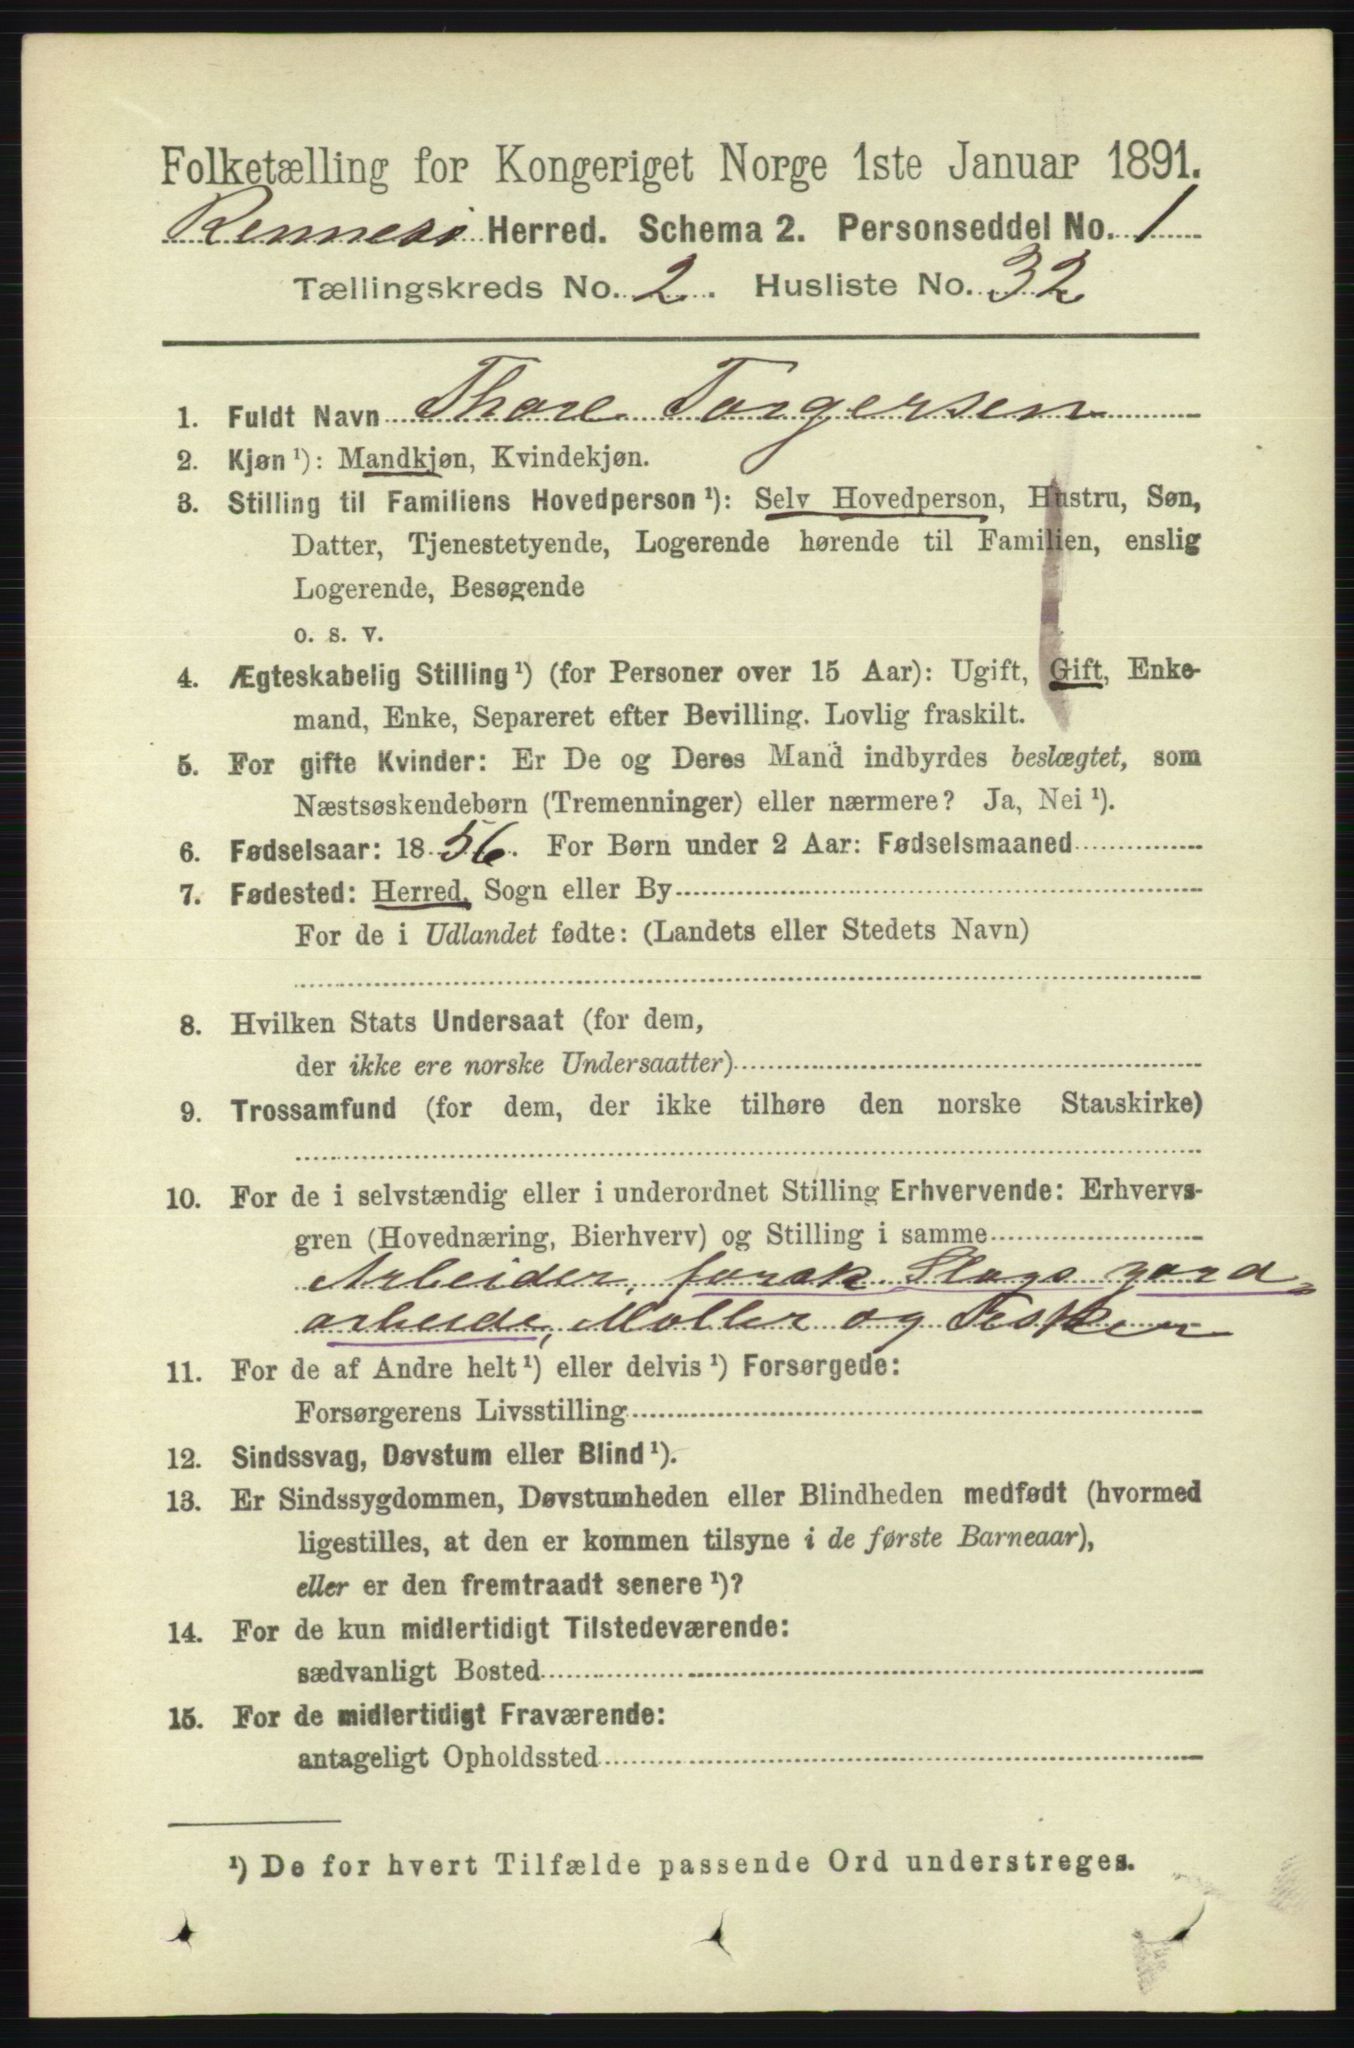 Folketælling for Kongeriget Norge 1ste Januar 1891.
Rennesø Herred. Schema 2. Personseddel No. 1
Tællingskreds No. 2. Husliste No. 32
1. Fuldt Navn Thore Torgersen
2. Kjøn ¹): Mandkjøn, Kvindekjøn.
3. Stilling til Familiens Hovedperson ¹): Selv Hovedperson, Hustru, Søn,
Datter, Tjenestetyende, Logerende hørende til Familien, enslig
Logerende, Besøgende
o. s. v.
4. Ægteskabelig Stilling ¹) (for Personer over 15 Aar): Ugift, Gift, Enke-
mand, Enke, Separeret efter Bevilling. Lovlig fraskilt.
5. For gifte Kvinder: Er De og Deres Mand indbyrdes beslægtet, som
Næstsøskendebørn (Tremenninger) eller nærmere? Ja, Nei ¹).
6. Fødselsaar: 1856. For Børn under 2 Aar: Fødselsmaaned
7. Fødested: Herred, Sogn eller By
For de i Udlandet fødte: (Landets eller Stedets Navn)
8. Hvilken Stats Undersaat (for dem,
der ikke ere norske Undersaatter)
9. Trossamfund (for dem, der ikke tilhøre den norske Statskirke)
10. For de i selvstændig eller i underordnet Stilling Erhvervende: Erhvervs-
gren (Hovednæring, Bierhverv) og Stilling i samme
Arbeider, forsk. Slags gard=
arbeide, Møller og Fisker
11. For de af Andre helt ¹) eller delvis ¹) Forsørgede:
Forsørgerens Livsstilling
12. Sindssvag, Døvstum eller Blind ¹).
13. Er Sindssygdommen, Døvstumheden eller Blindheden medfødt (hvormed
ligestilles, at den er kommen tilsyne i de første Barneaar),
eller er den fremtraadt senere ¹)?
14. For de kun midlertidigt Tilstedeværende:
sædvanligt Bosted
15. For de midlertidigt Fraværende:
antageligt Opholdssted
¹) De for hvert Tilfælde passende Ord understreges.